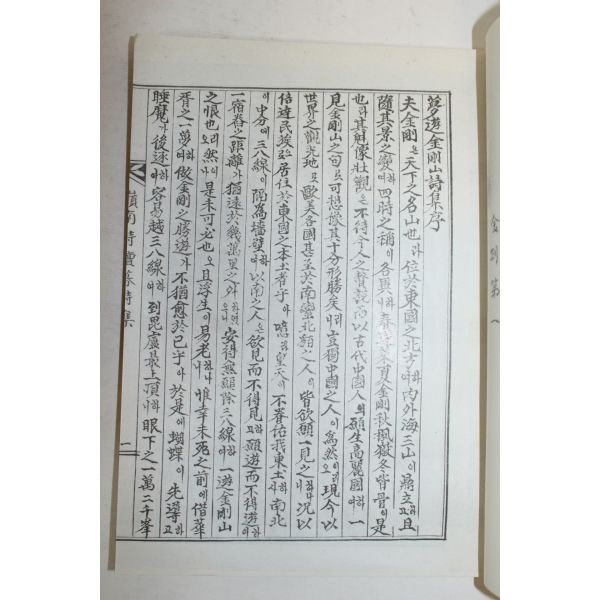 夢遊金剛山詩集序
夫金剛은天下之名山也라位於東國之北方하여內外海三山이鼎立하고且
隨其景之變하여四時之稱이各異하니春蓬萊夏金剛秋楓嶽冬皆骨이是
也라其觧像壯觀은不待今人之贊說而以古代中國人의願生高麗國하여一
見金剛山之句로可想像其十分形勝矣리라豈獨中國之人이爲然이리오現今以
世界之觀光地로歐美各國甚至於南蠻北貊之人이皆欲願一見之하나니況以
倍達民族으로居住於東國之本土者乎아噫라皇天이不眷佑我東土하사南北
이中分에三八線이隔爲墻壁하여以南之人은欲見而不得見하고願遊而不得遊하니
一宿舂之距離가猶遠於幾萬里之外하니安得無驅除三八線하여一遊金剛山
之恨也리오然이나是未可必也오且浮生이易老하나니惟幸未死之前에借華
胥之一夢하여倣金剛之勝遊가不猶愈於已乎아於是에蝴蝶이先導하고
睡魔가後逐하야容易越三八線하여到毘盧最上頂하니眼下之一萬二千峯
嶺南詩壇叢詩集
一